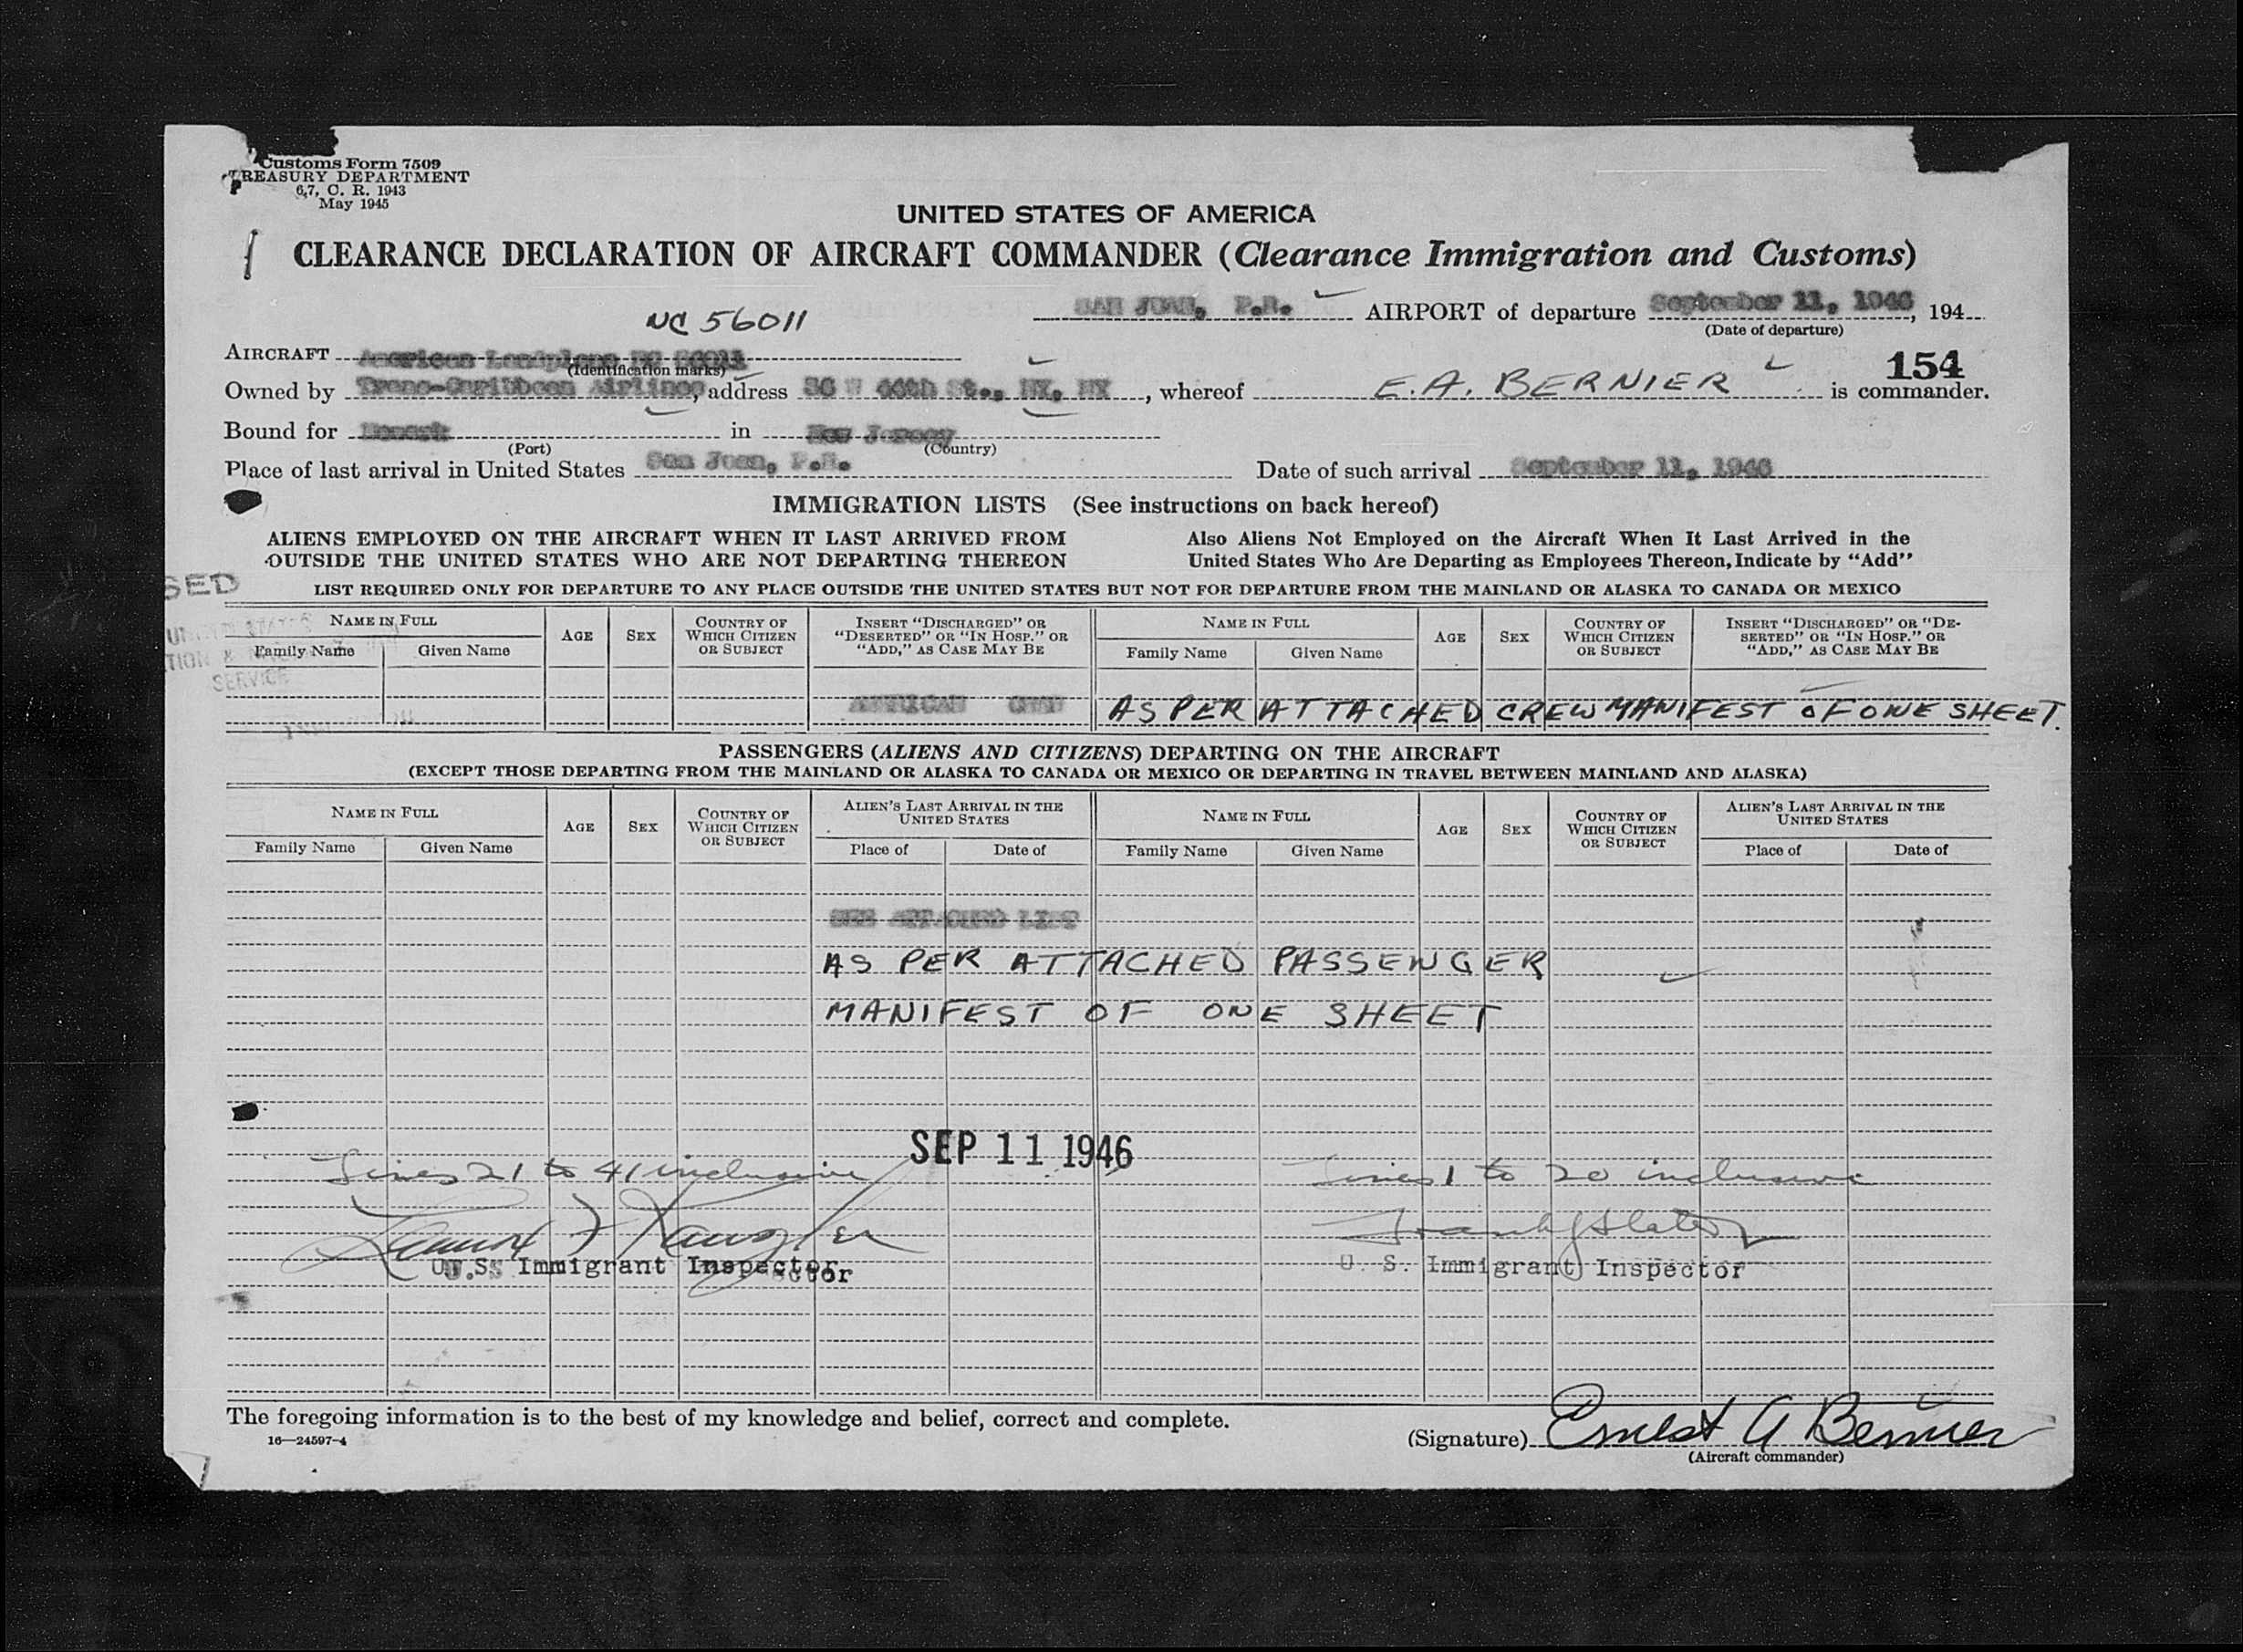 Customs Form 7509
TREASURY DEPARTMENT
6,7, C. R. 1943
May 1945
UNITED STATES OF AMERICA
CLEARANCE DECLARATION OF AIRCRAFT COMMANDER (Clearance Immigration and Customs)
NC 56011
SAN JUAN, P.R. AIRPORT of departure September 11, 1946, 194
(Date of departure)
AIRCRAFT American Landplane NC 56011
(Identification marks)
154
Owned by Trans-Caribbean Airlines, address 36 W 44th St., NY, NY, whereof E.A. BERNIER is commander.
Bound for Newark in New Jersey
(Port) (Country)
Place of last arrival in United States San Juan, P.R. Date of such arrival September 11, 1946
IMMIGRATION LISTS (See instructions on back hereof)
ALIENS EMPLOYED ON THE AIRCRAFT WHEN IT LAST ARRIVED FROM OUTSIDE THE UNITED STATES WHO ARE NOT DEPARTING THEREON
Also Aliens Not Employed on the Aircraft When It Last Arrived in the United States Who Are Departing as Employees Thereon, Indicate by "Add"
SED
LIST REQUIRED ONLY FOR DEPARTURE TO ANY PLACE OUTSIDE THE UNITED STATES BUT NOT FOR DEPARTURE FROM THE MAINLAND OR ALASKA TO CANADA OR MEXICO
NAME IN FULL AGE SEX COUNTRY OF WHICH CITIZEN OR SUBJECT INSERT "DISCHARGED" OR "DESERTED" OR "IN HOSP." OR "ADD," AS CASE MAY BE NAME IN FULL AGE SEX COUNTRY OF WHICH CITIZEN OR SUBJECT INSERT "DISCHARGED" OR "DE-SERTED" OR "IN HOSP." OR "ADD," AS CASE MAY BE
Family Name Given Name Family Name Given Name
SERVICE
AMERICAN CREW AS PER ATTACHED CREW MANIFEST OF ONE SHEET.
PASSENGERS (ALIENS AND CITIZENS) DEPARTING ON THE AIRCRAFT
(EXCEPT THOSE DEPARTING FROM THE MAINLAND OR ALASKA TO CANADA OR MEXICO OR DEPARTING IN TRAVEL BETWEEN MAINLAND AND ALASKA)
NAME IN FULL AGE SEX COUNTRY OF WHICH CITIZEN OR SUBJECT ALIEN'S LAST ARRIVAL IN THE UNITED STATES NAME IN FULL AGE SEX COUNTRY OF WHICH CITIZEN OR SUBJECT ALIEN'S LAST ARRIVAL IN THE UNITED STATES
Family Name Given Name Place of Date of Family Name Given Name Place of Date of
SEE ATTACHED LIST
AS PER ATTACHED PASSENGER
MANIFEST OF ONE SHEET
SEP 11 1946
Lines 21 to 41 inclusive Lines 1 to 20 inclusive
Frank J Slater
U.S. Immigrant Inspector U. S. Immigrant Inspector
The foregoing information is to the best of my knowledge and belief, correct and complete.
16—24597-4
(Signature) Ernest A Bernier
(Aircraft commander)